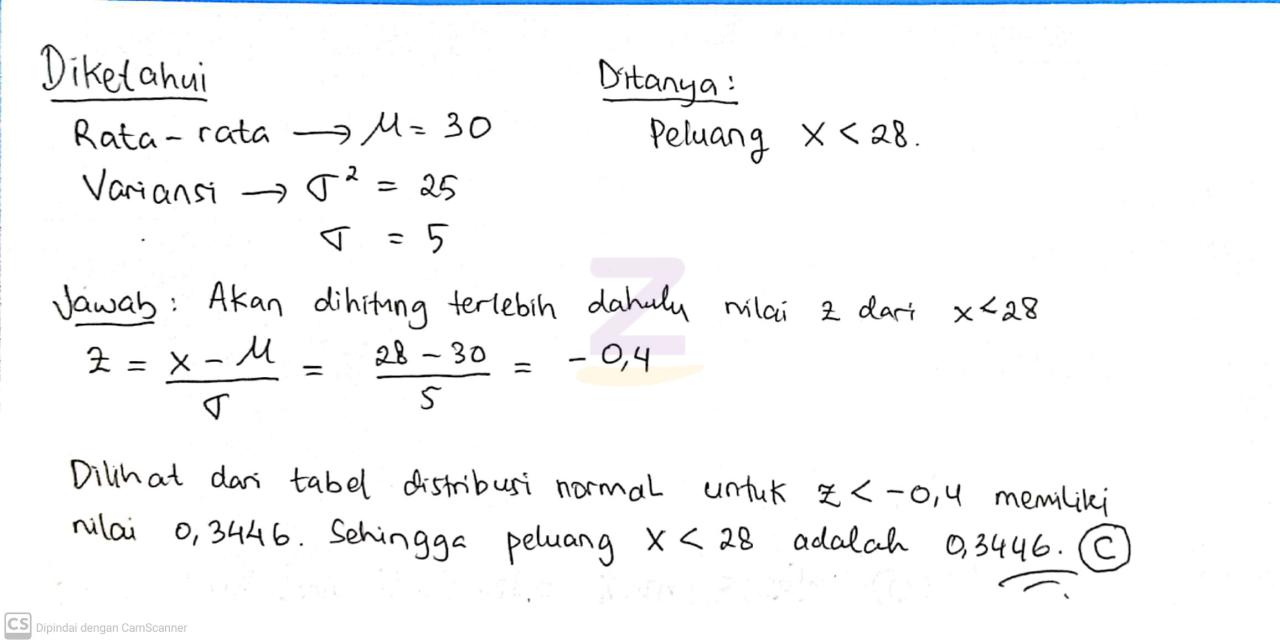 Diketahui
Rata-rata → μ = 30
Variansi → σ² = 25
σ = 5
Ditanya:
Peluang X < 28.
Jawab: Akan dihitung terlebih dahulu nilai z dari x<28
z = x - μ / σ = 28 - 30 / 5 = - 0,4
Dilihat dari tabel distribusi normal untuk z < -0,4 memiliki
nilai 0,3446. Sehingga peluang X < 28 adalah 0,3446. C
Z
CS Dipindai dengan CamScanner